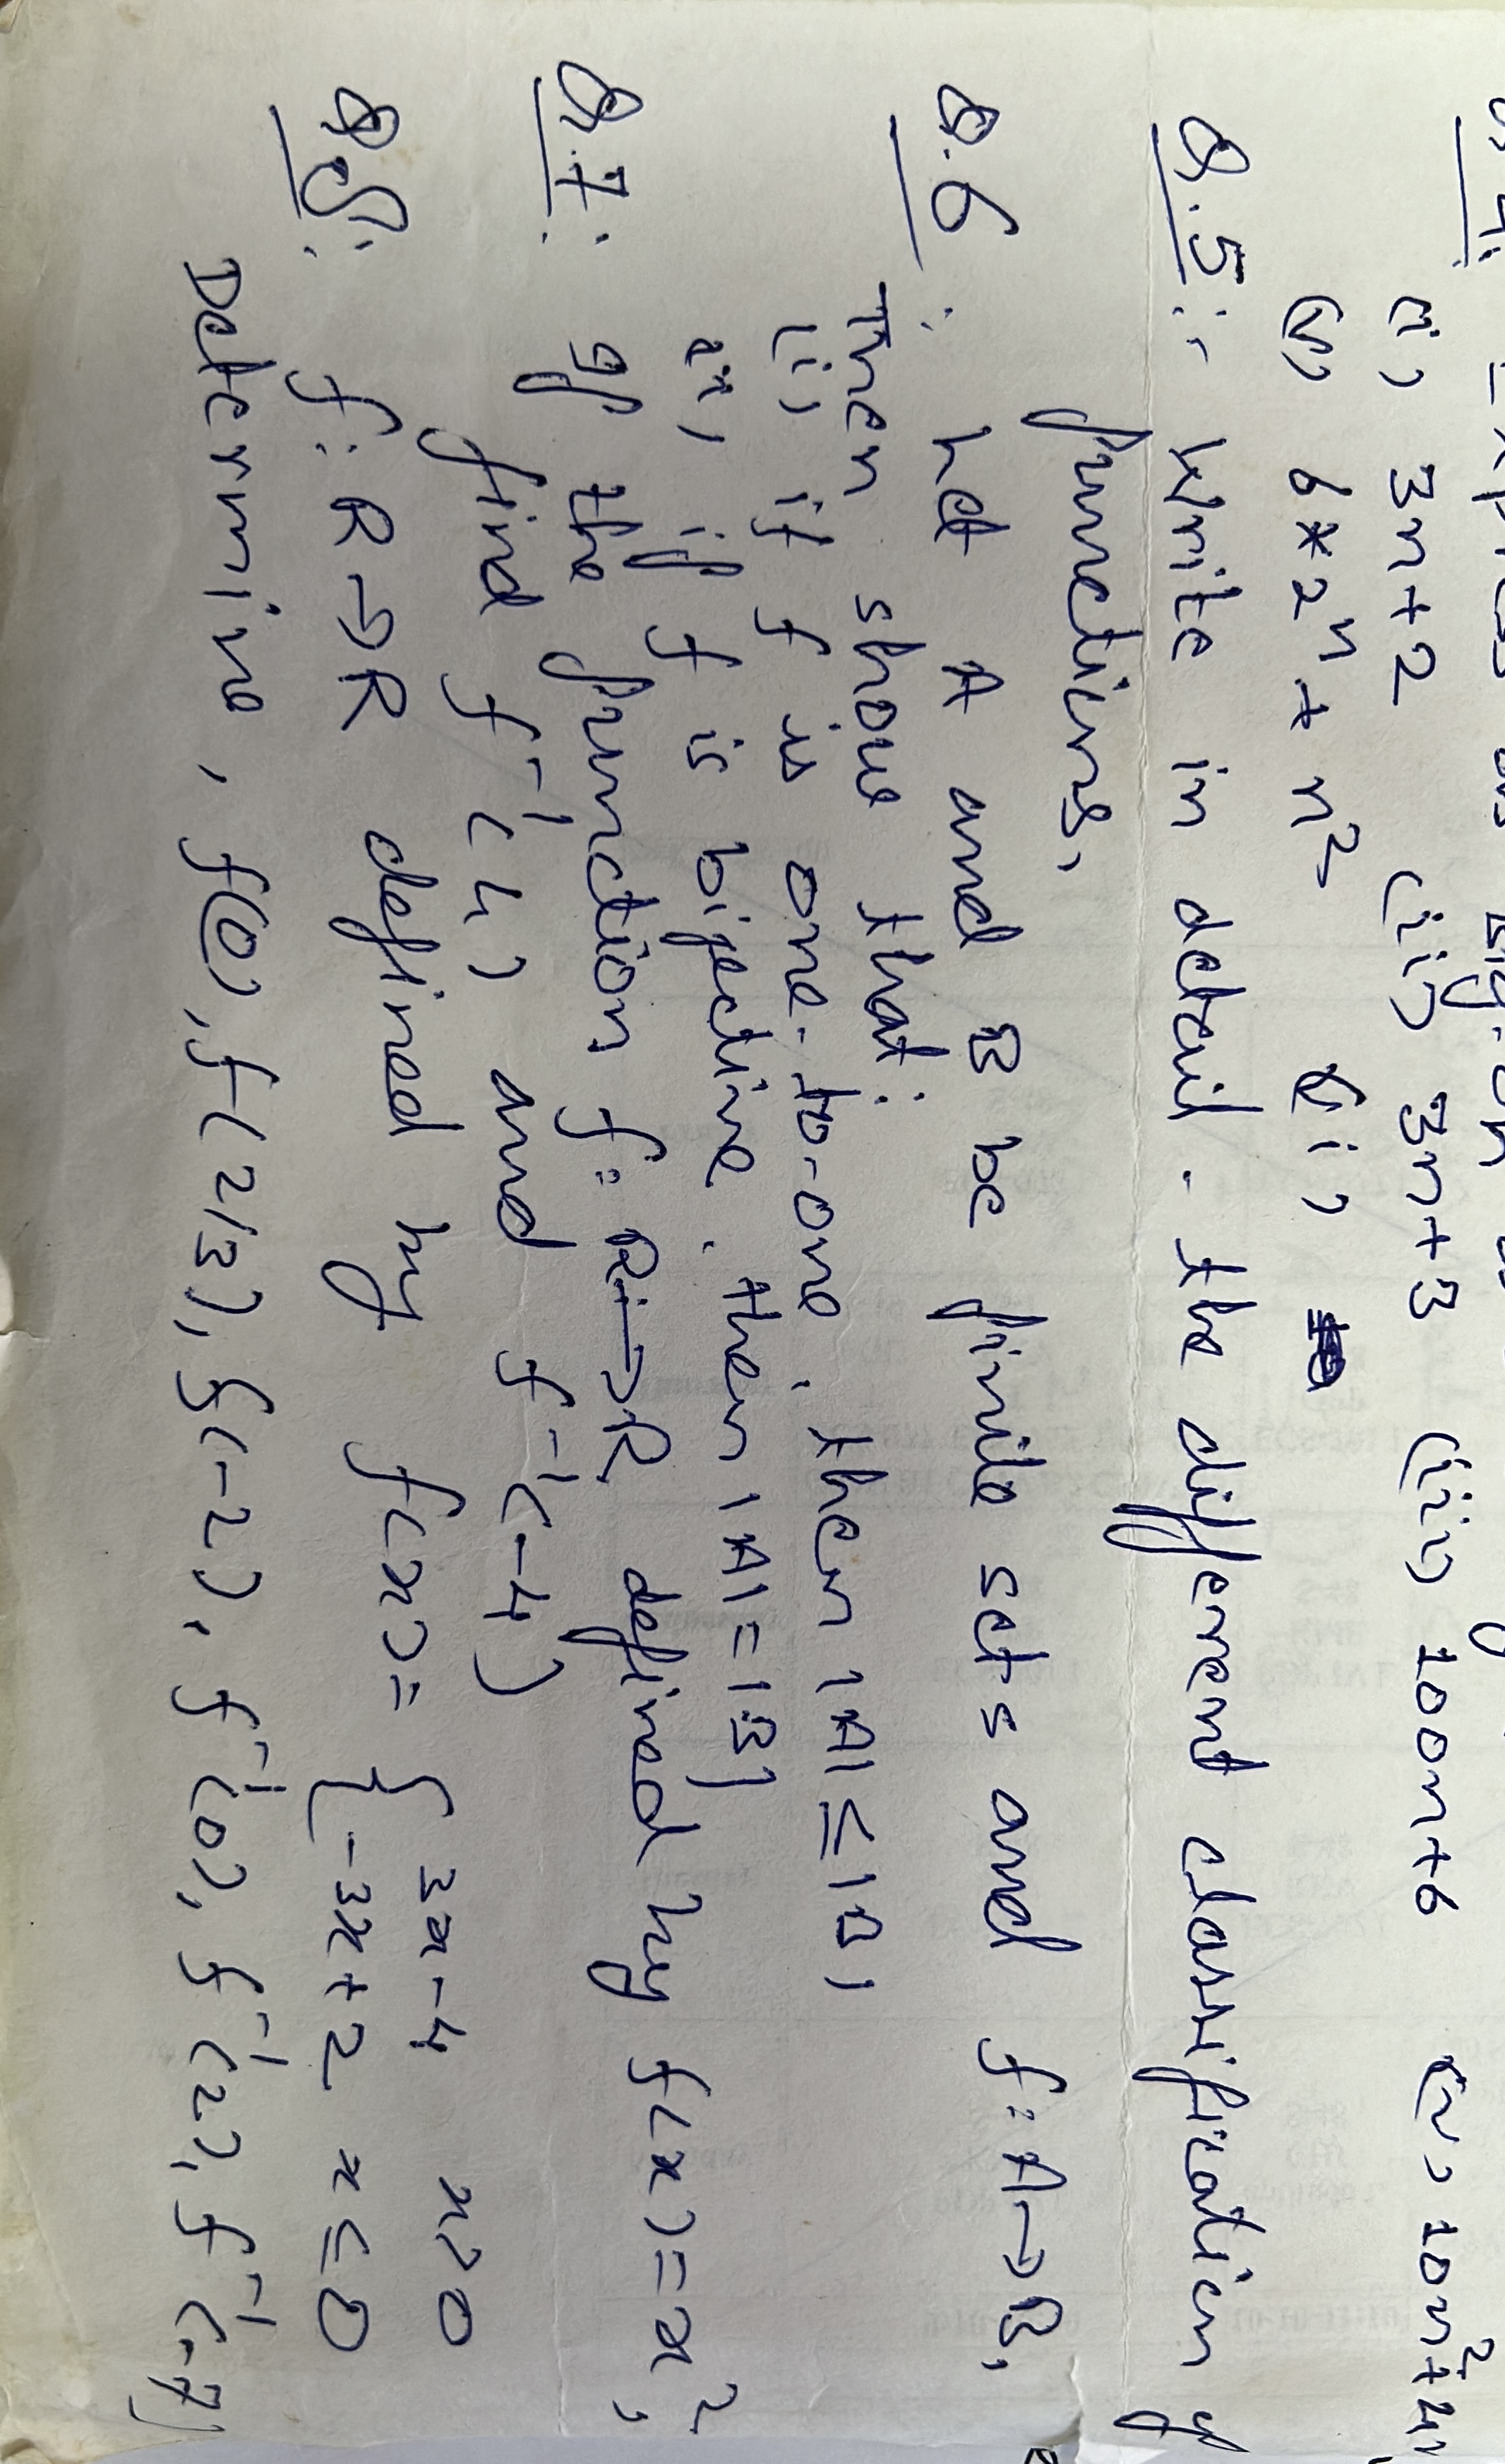 (i) 3n+2 (ii) 3n+3 (iii) 100n+6 (iv) 10n²+4n
(v) 6*2ⁿ+n²
Q.5:- Write in detail. the different classification of
functions,
Q.6: Let A and B be finite sets and f: A→B,
Then show that:
(i) if f is one-to-one. then |A| ≤ |B|
if f is bijective. then |A| = |B|
Q.7: If the function f: R→R defined by f(x) = x²,
find f⁻¹(4) and f⁻¹(-4)
Q.8: f: R→R defined by f(x) = { 3x-4 x>0
-3x+2 x≤0
Determine, f(0), f(2/3), f(-2), f⁻¹(0), f⁻¹(2), f⁻¹(-7)